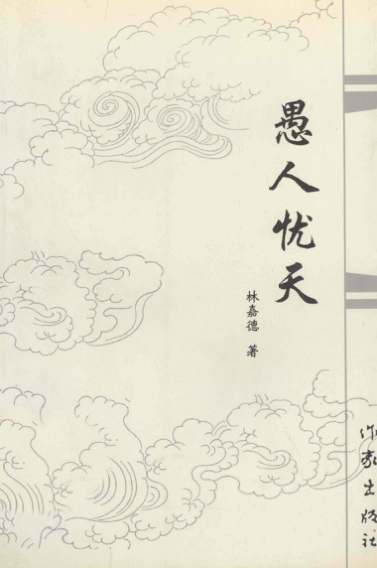 愚人忧天
林嘉德 著
作家出版社